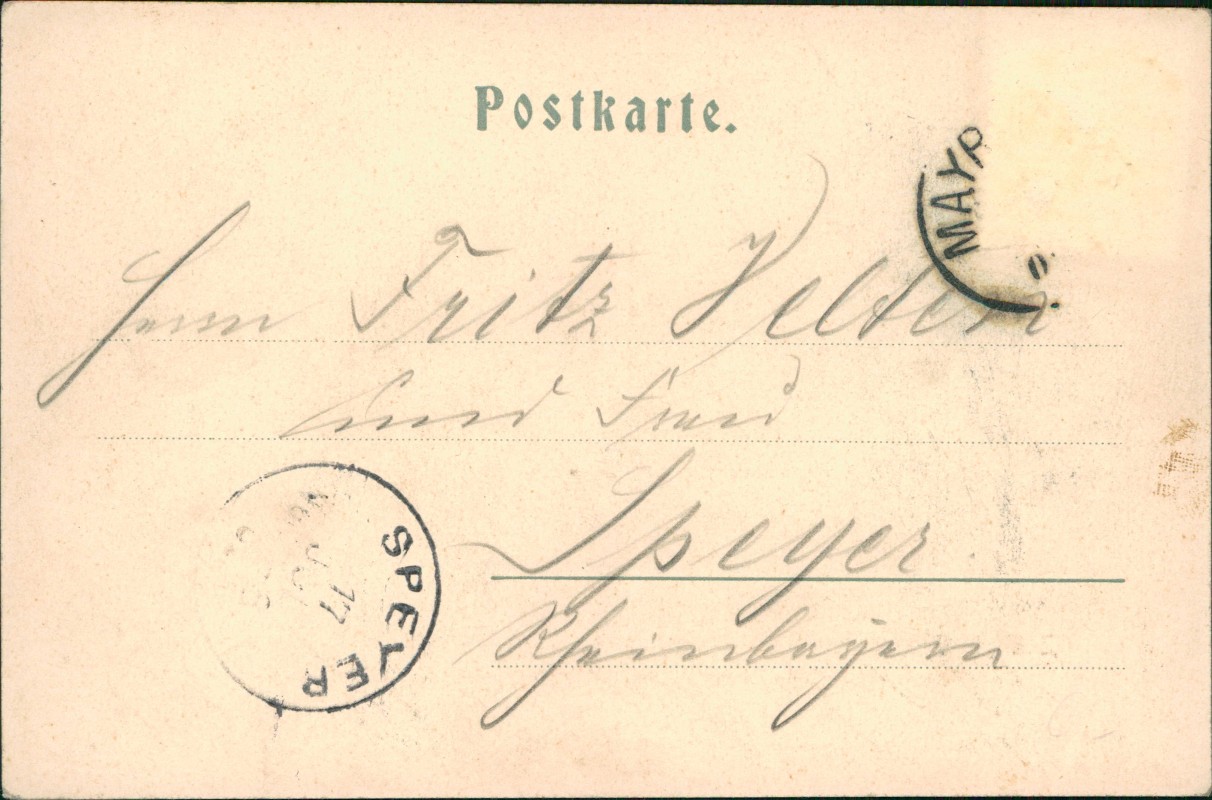 Postkarte.
MAYR
Herrn Fritz Velten
und Frau
Speyer.
Rheinbayern
SPEYER
17